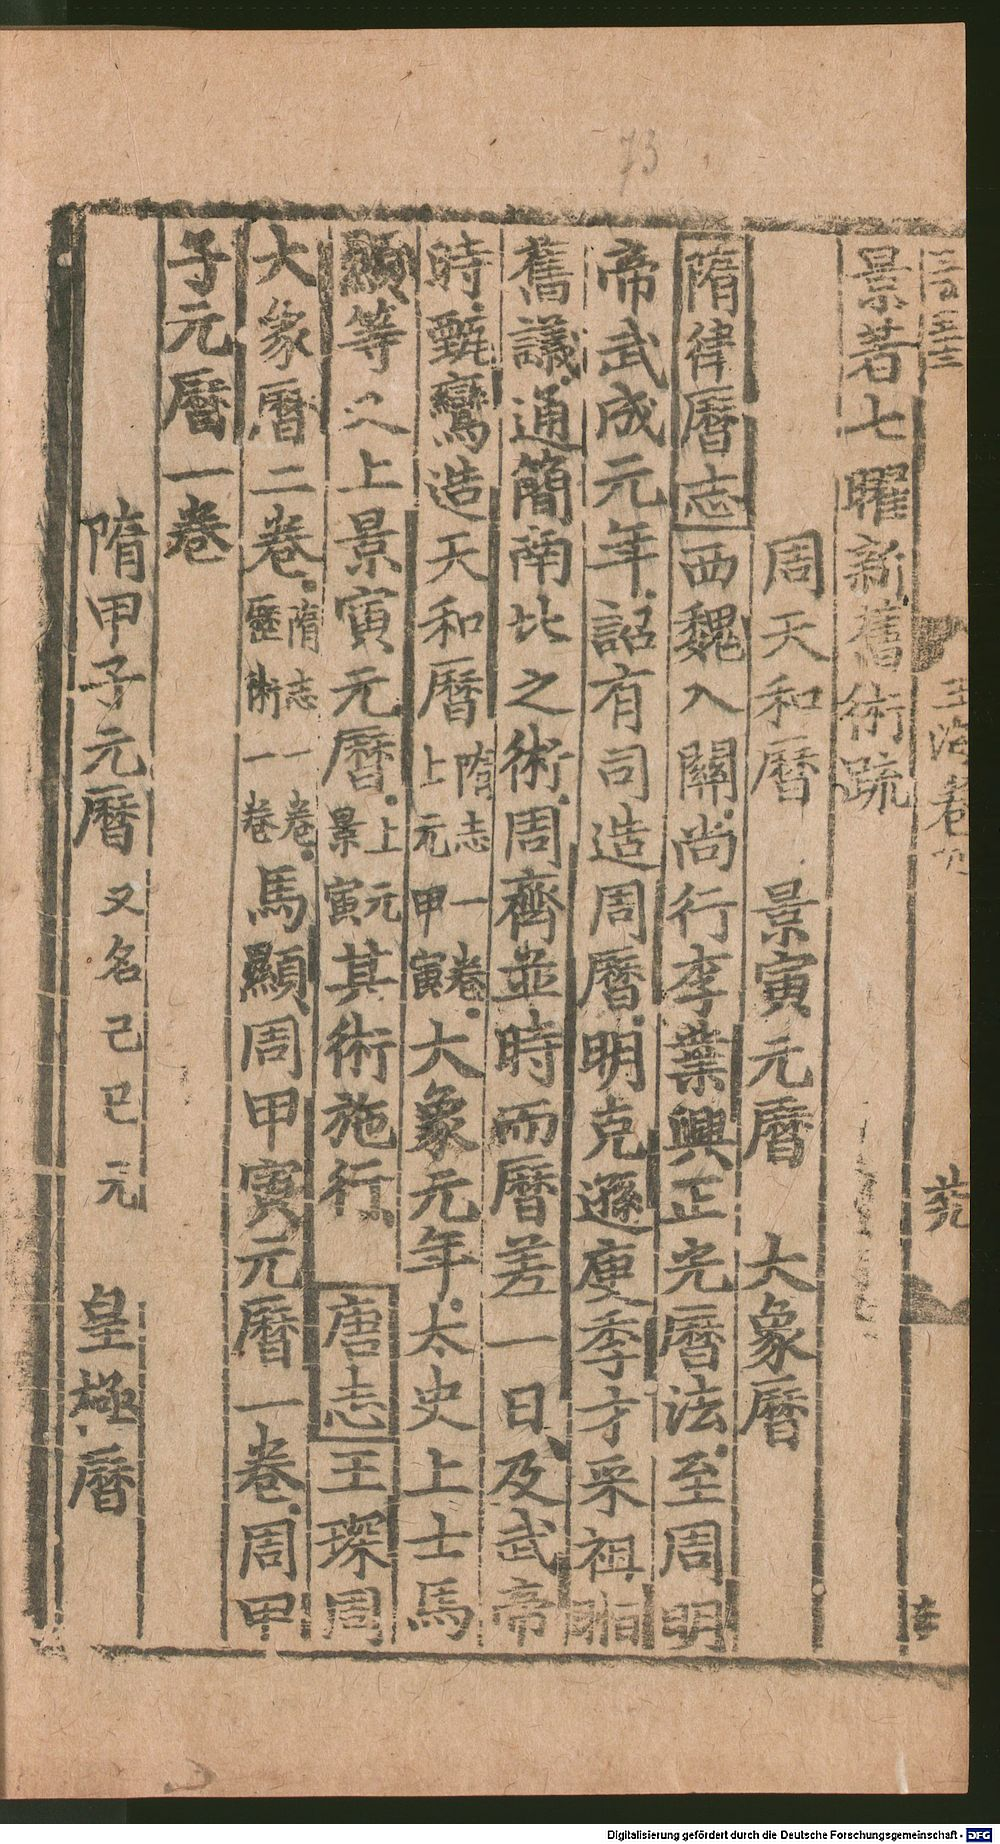 73
玉海卷九
景著七曜新舊術䟽
周天和曆 景寅元曆 大象曆
隋律曆志西魏入關尚行李業興正光曆法至周明
帝武成元年詔有司造周曆明克遜庾季才采祖暅
舊議通簡南北之術周齊並時而曆差一日及武帝
時甄鸞造天和曆隋志一卷上元甲寅大象元年太史上士馬
顯等又上景寅元曆上元景寅其術施行唐志王琛周
大象曆二卷隋志一卷曆術一卷馬顯周甲寅元曆一卷周甲
子元曆一卷
隋甲子元曆又名己巳元 皇極曆
Digitalisierung gefördert durch die Deutsche Forschungsgemeinschaft - DFG